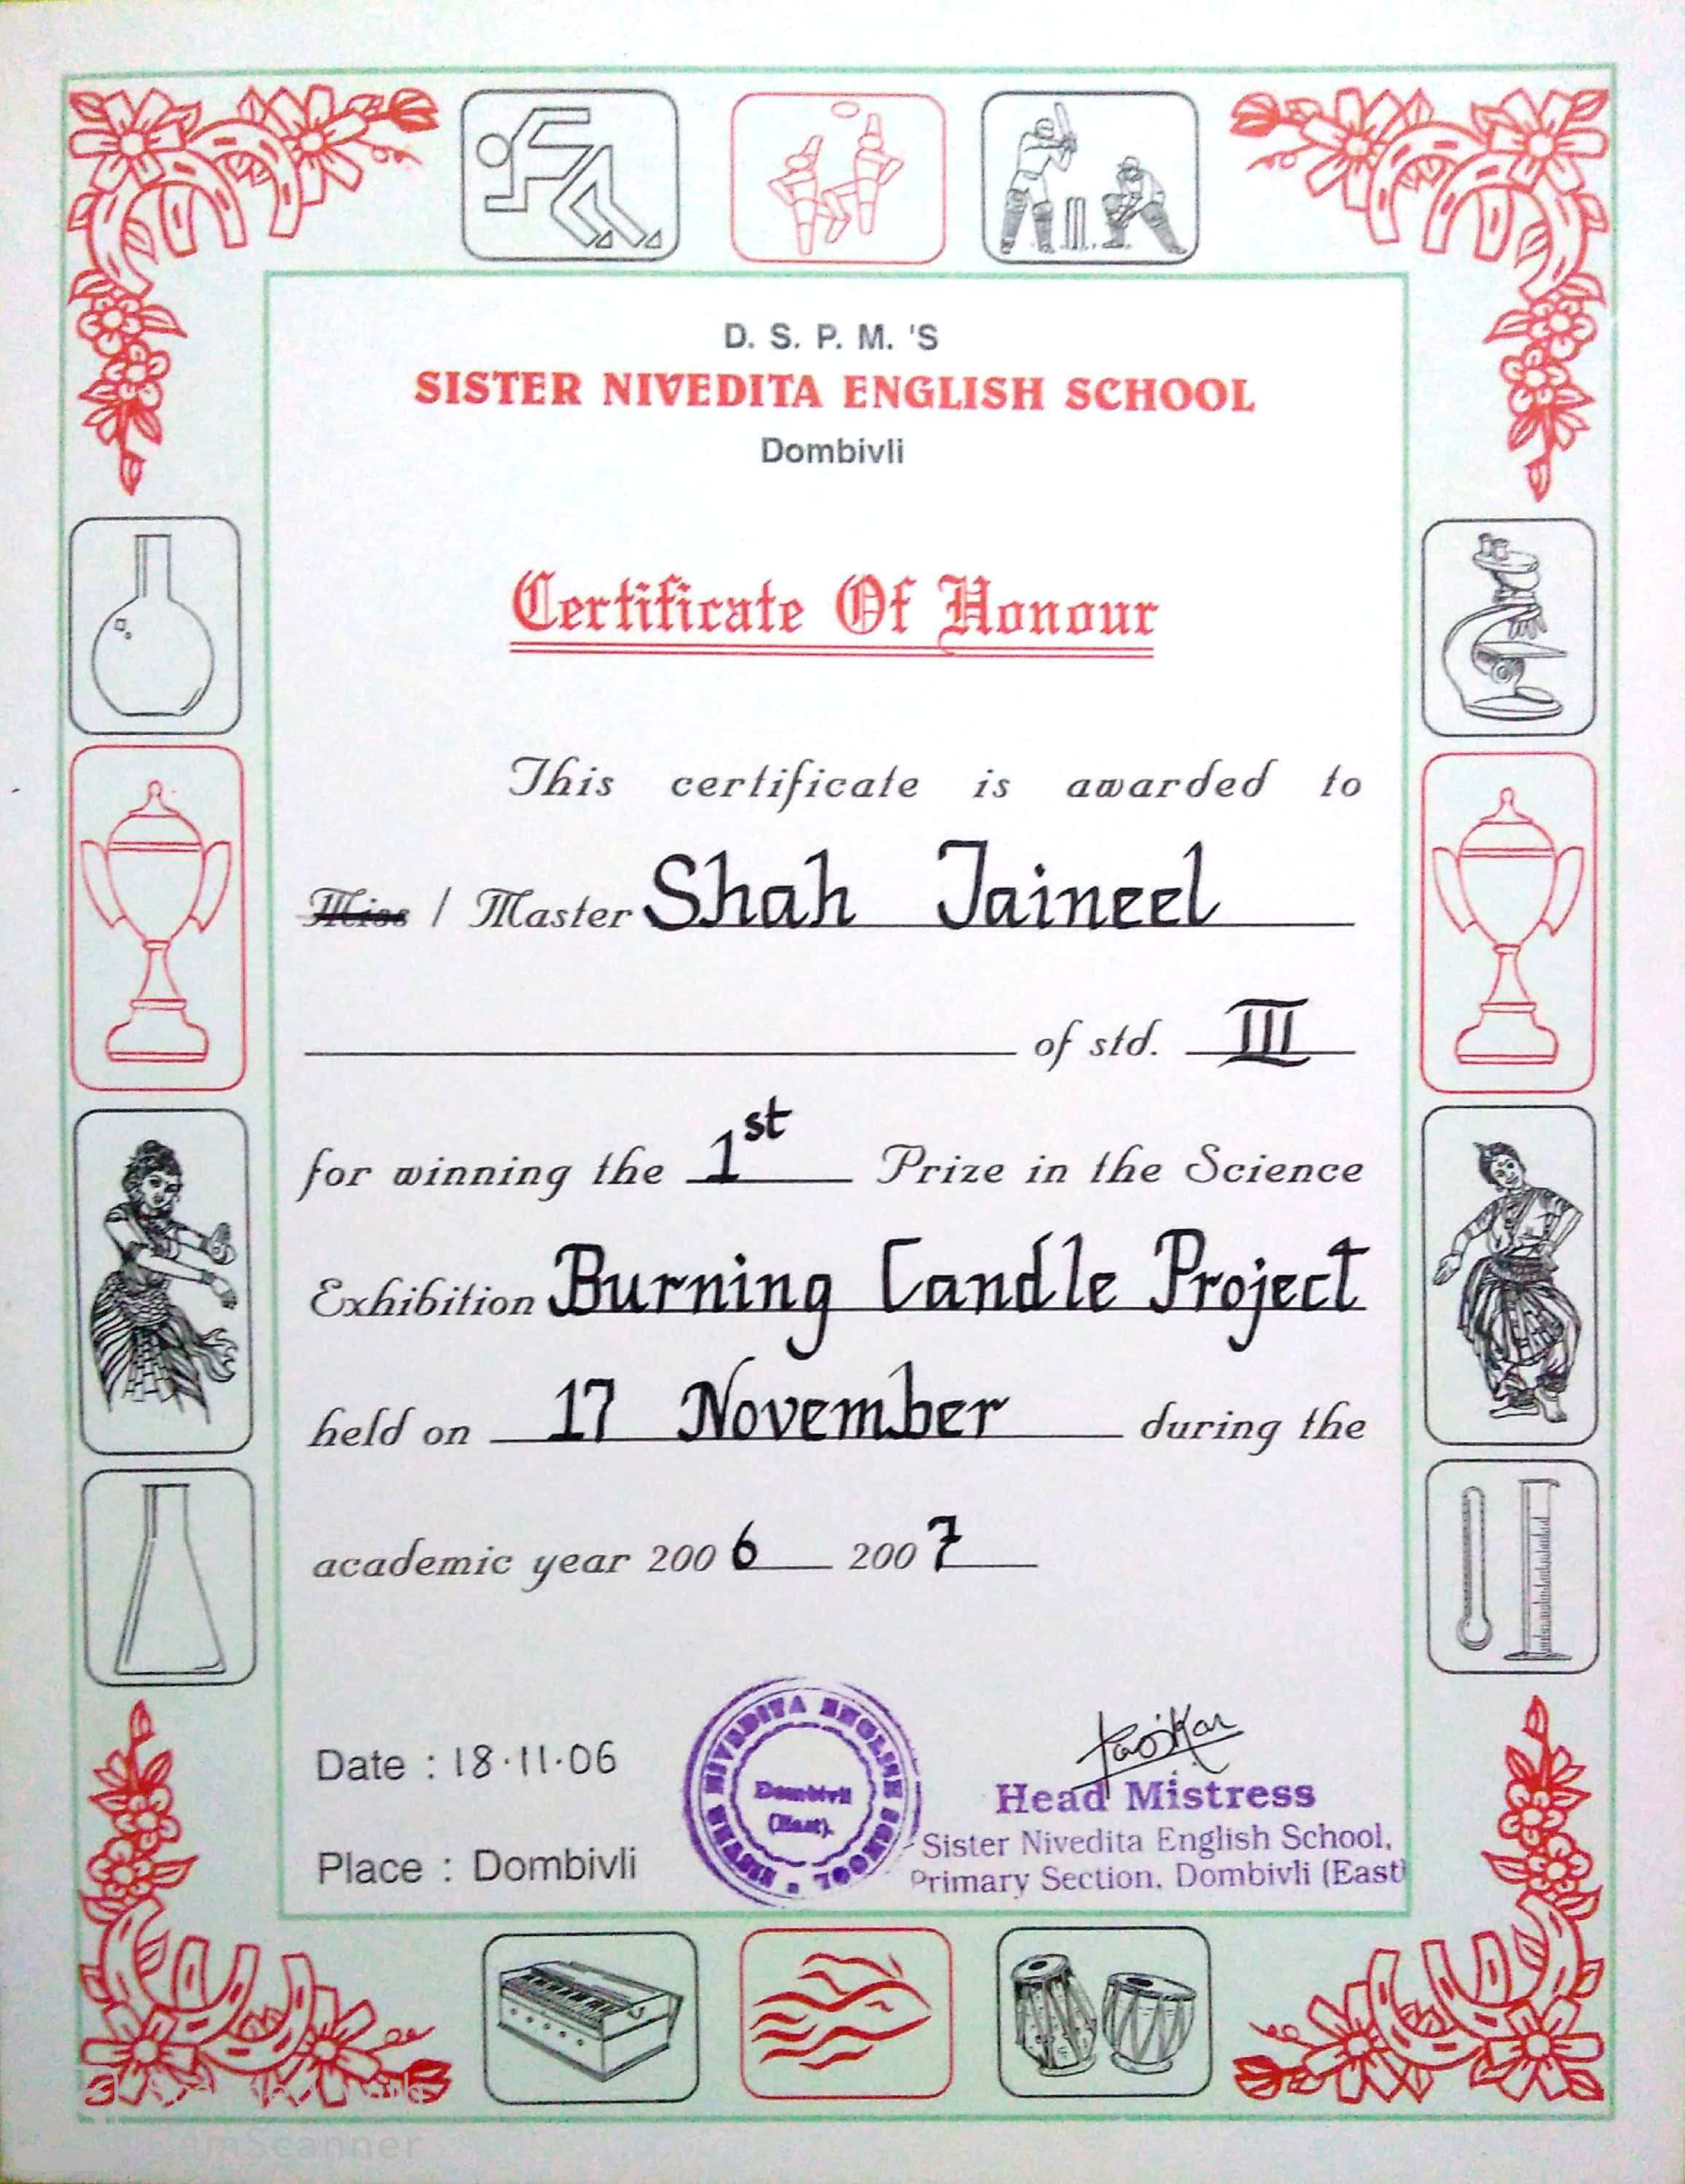 D. S. P. M. 'S
SISTER NIVEDITA ENGLISH SCHOOL
Dombivli
Certificate Of Honour
This certificate is awarded to
Miss / Master Shah Jaineel
of std. III
for winning the 1st Prize in the Science
Exhibition Burning Candle Project
held on 17 November during the
academic year 2006 2007
Date : 18.11.06
Place : Dombivli
SISTER NIVEDITA ENGLISH SCHOOL
Dombivli
(East).
Head Mistress
Sister Nivedita English School,
Primary Section, Dombivli (East)
Scanned with
CamScanner